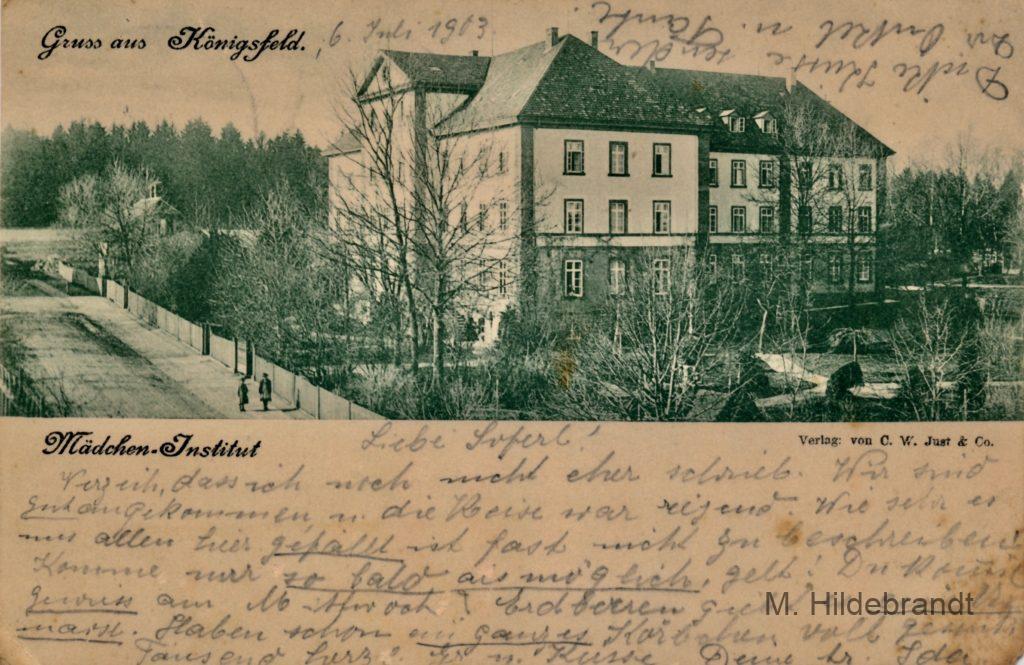 Gruss aus Königsfeld.
6. Juli 1903
Dicke Küsse sendet
Onkel u. Tante.
Mädchen-Institut
Verlag: von C. W. Just & Co.
Liebe
Verzeih, dass ich noch nicht eher schrieb. Wir sind
gut angekommen u. die Reise war reizend. Wie sehr es
uns allen hier gefällt ist fast nicht zu beschreiben
Komme nur so bald als möglich, gelt! Du
gewiss am Mittwoch! Erdbeeren
Haben schon ein ganzes Körbchen voll
Tausend herz. Gr. u. Küsse Deine tr. Ida
M. Hildebrandt